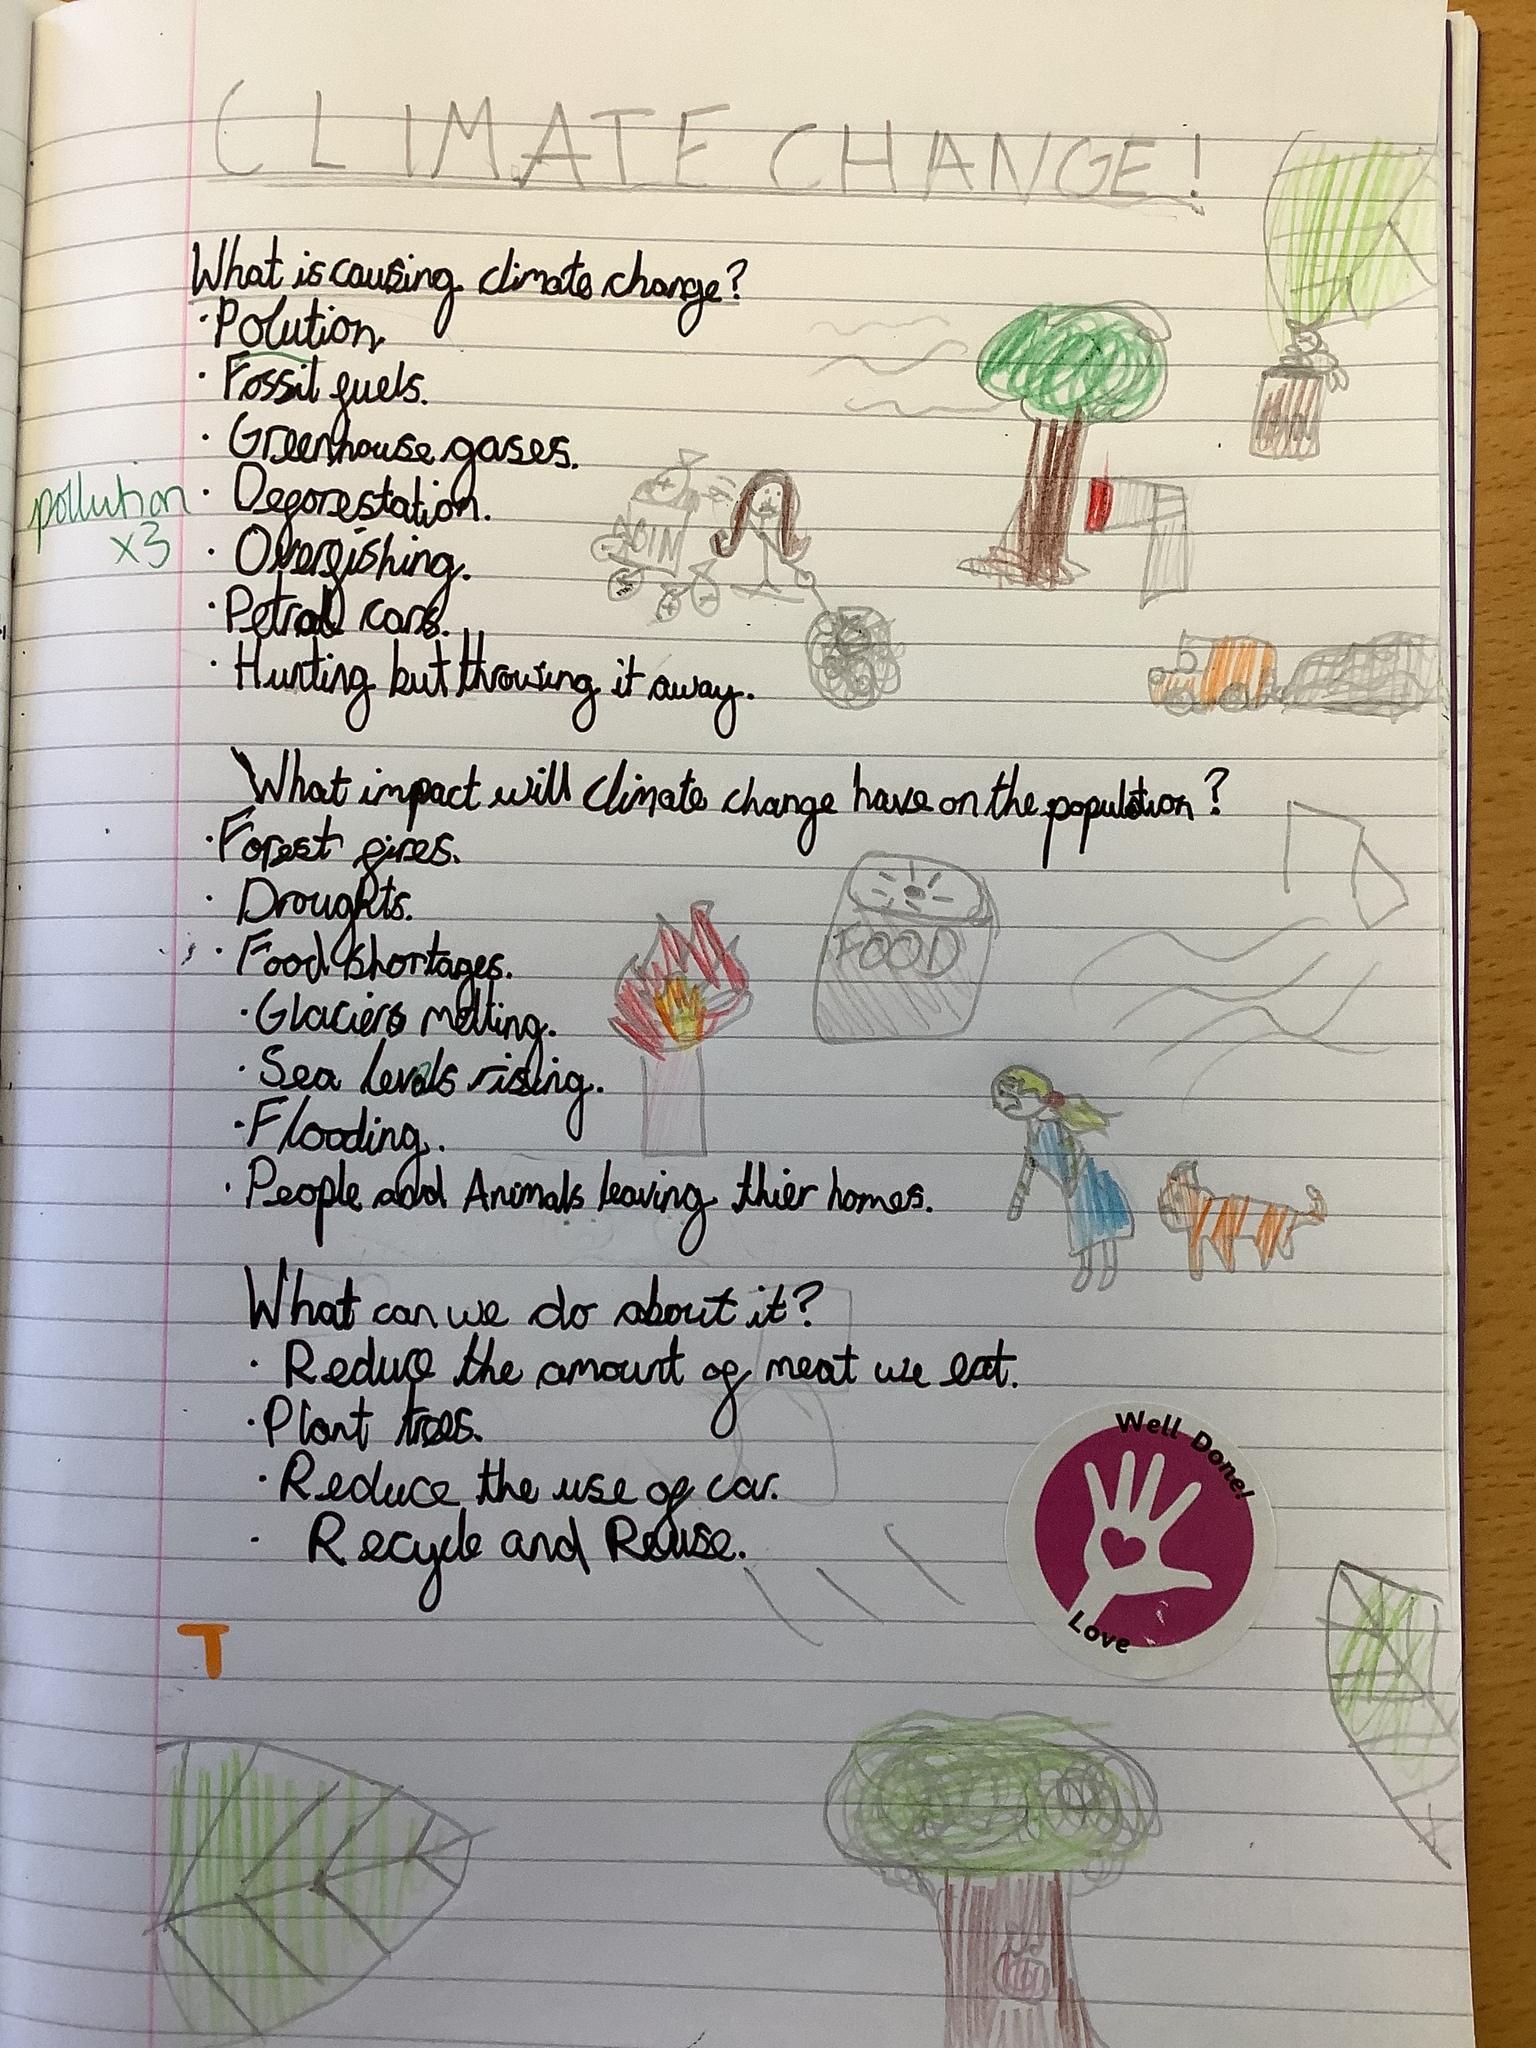 CLIMATE CHANGE!
What is causing climate change?
· Polution
· Fossil fuels.
· Greenhouse gases.
pollution
x3
· Deforestation.
· Overfishing.
· Petrol cars.
· Hunting but throwing it away.
BIN
What impact will climate change have on the population?
· Forest fires.
· Droughts.
· Food shortages.
· Glaciers melting.
· Sea levels rising.
· Flooding.
· People and Animals leaving thier homes.
FOOD
What can we do about it?
· Reduce the amount of meat we eat.
· Plant trees.
· Reduce the use of car.
· Recycle and Reuse.
Well Done!
Love
T